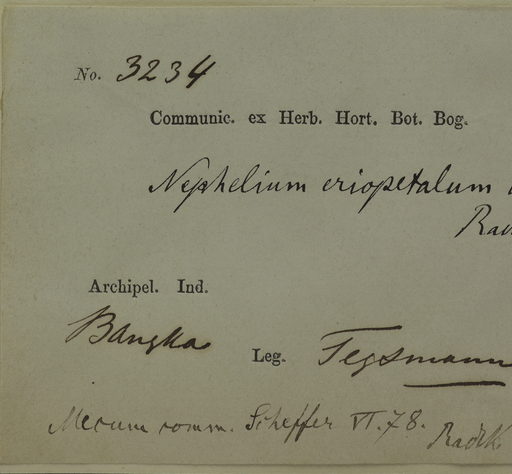 No. 3234
Communic. ex Herb. Hort. Bot. Bog.
Nephelium eriopetalum
Archipel. Ind.
Bangka
Leg. Teysmann
Mecum comm. Scheffer VI. 78.
Radlk